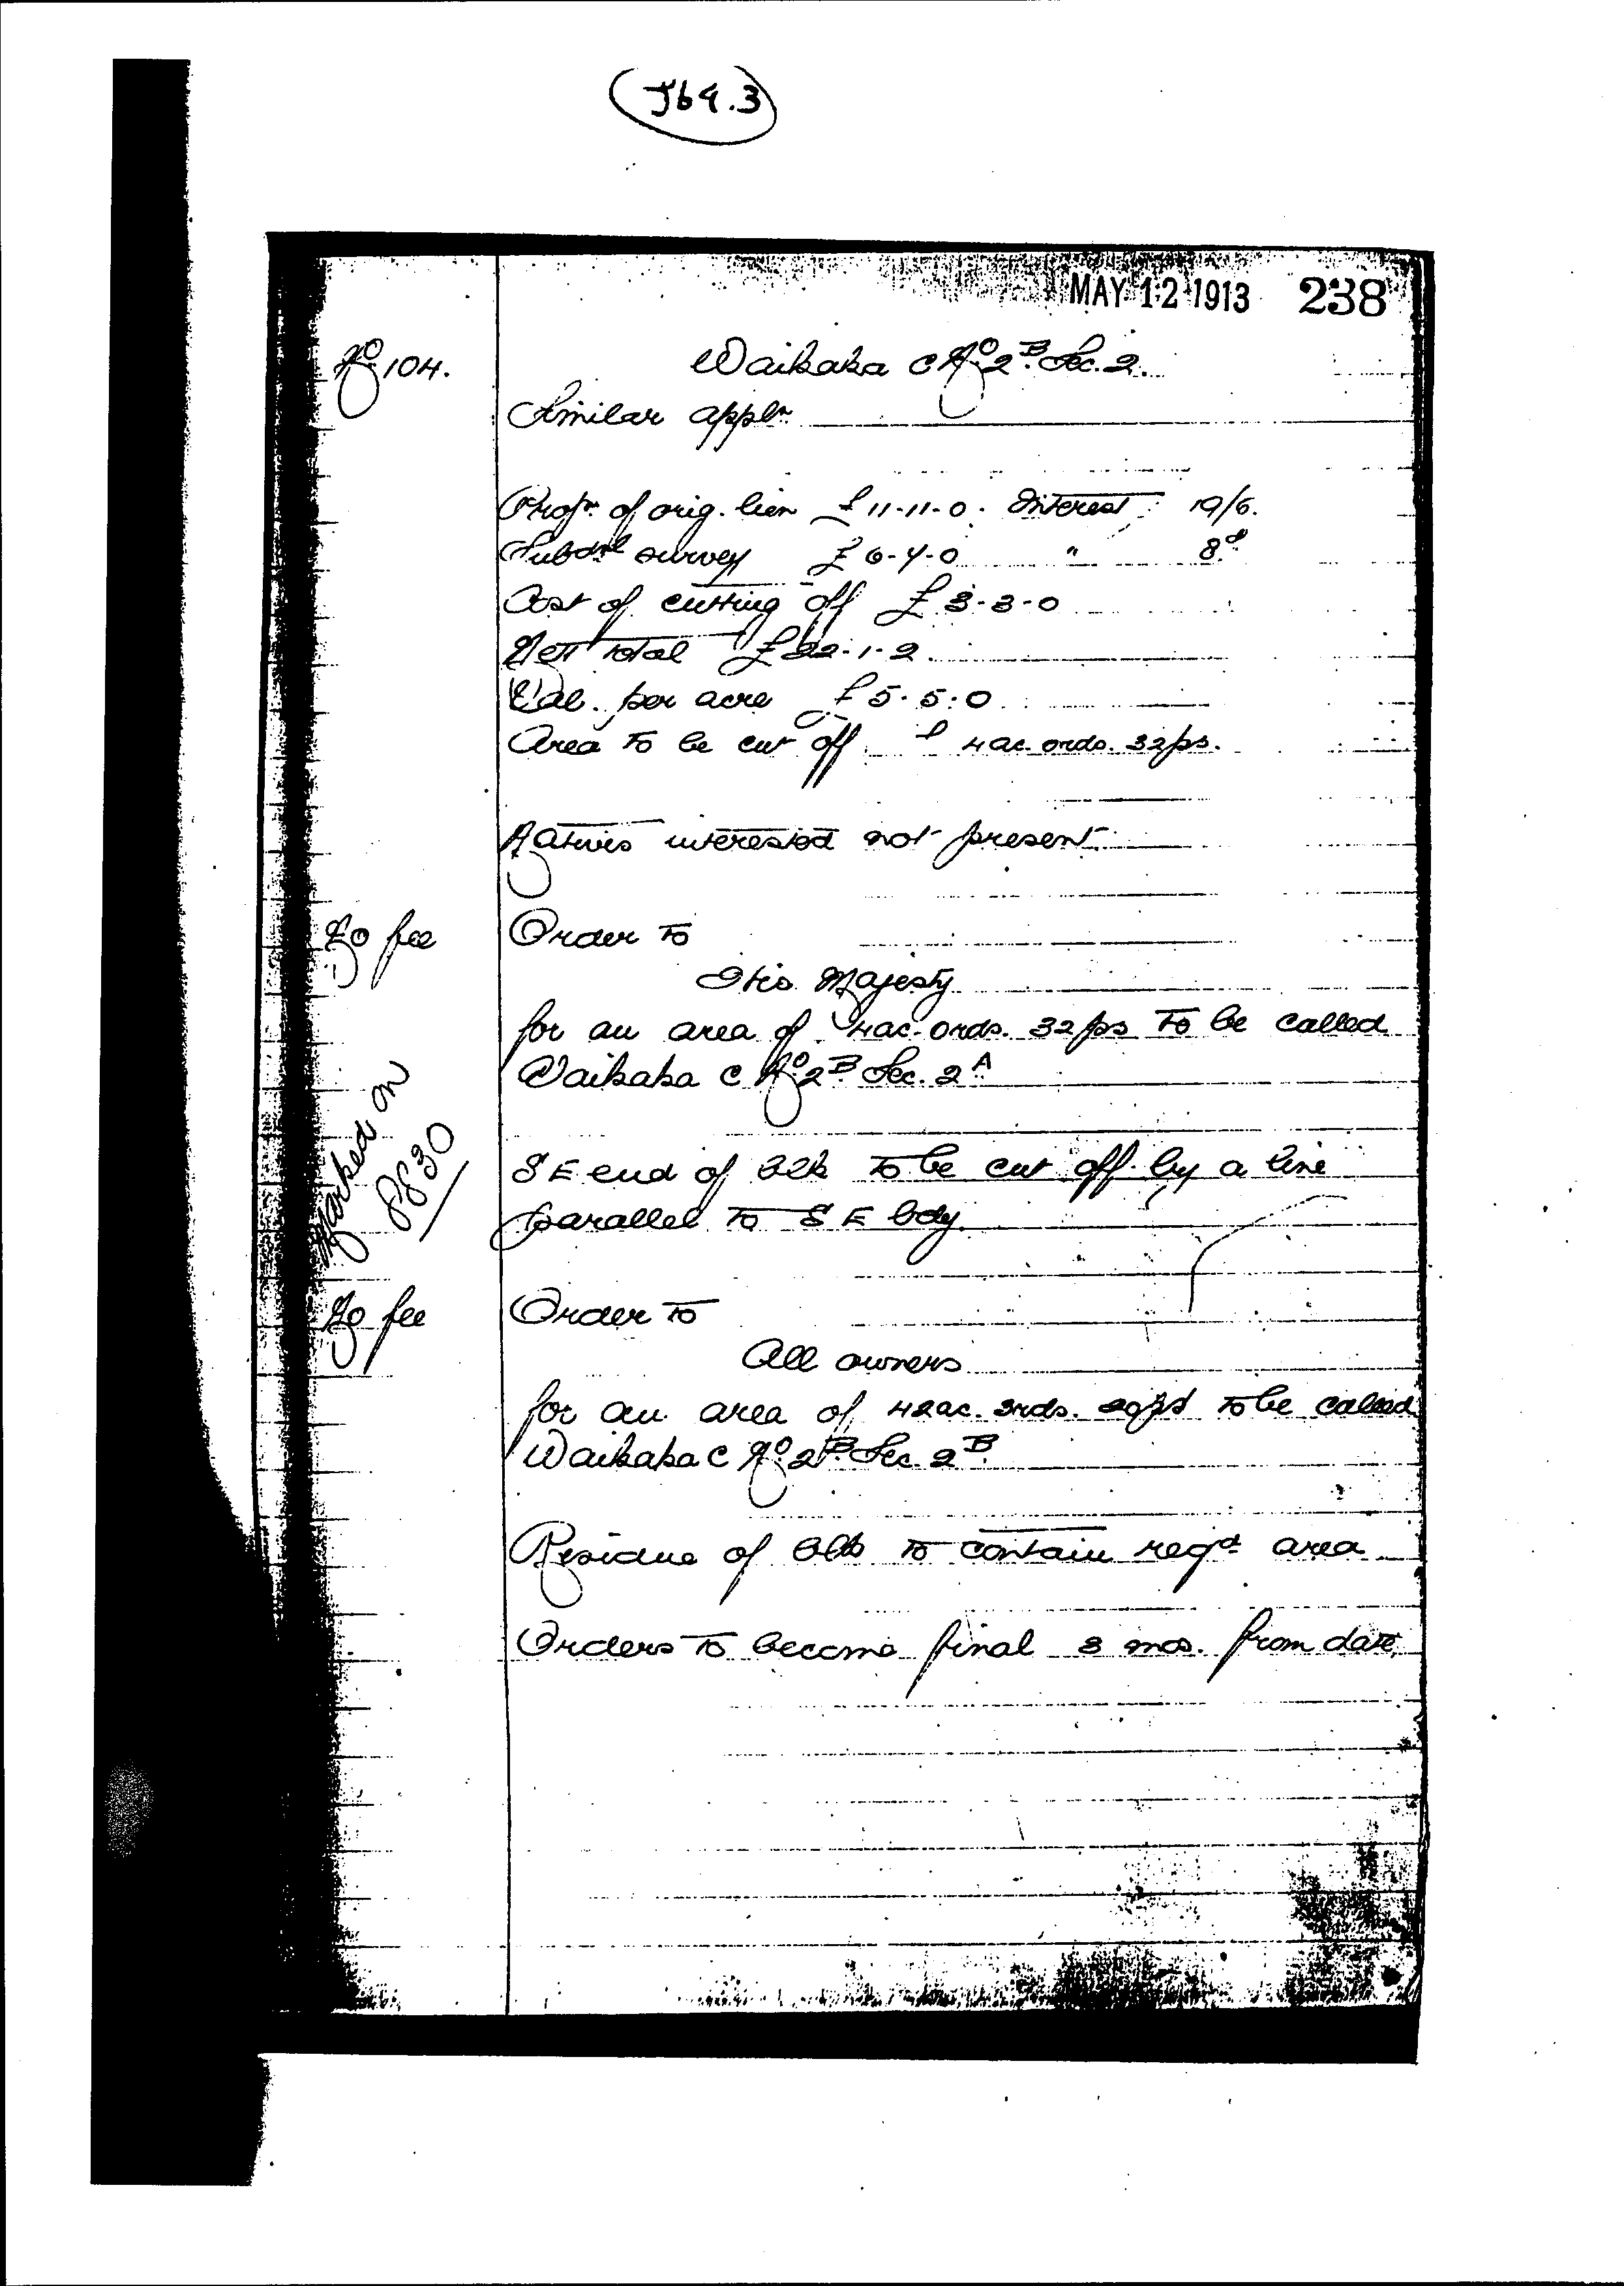 J64.3
MAY 12 1913 238
No 104. Waikaka C No 2B. Sec. 2.
Similar appln
Propn of orig. lien £11-11-0. Interest 19/6.
Subdnl survey £6-7-0 " 8d
Cost of cutting off £3-3-0
Nett total £22-1-2
Val. per acre £5.5.0
Area to be cut off 4ac. 0rds. 32ps.
Natives interested not present.
No fee Order to
His Majesty
for an area of 4ac. 0rds. 32ps to be called
Waikaka C No 2B. Sec. 2A
Marked on
8830
SE end of Blk to be cut off by a line
parallel to SE bdy.
No fee Order to
All owners
for an area of 42ac. 3rds. ps to be called
Waikaka C No 2B. Sec. 2B.
Residue of Blk to contain reqd area
Orders to become final 3 mos. from date.